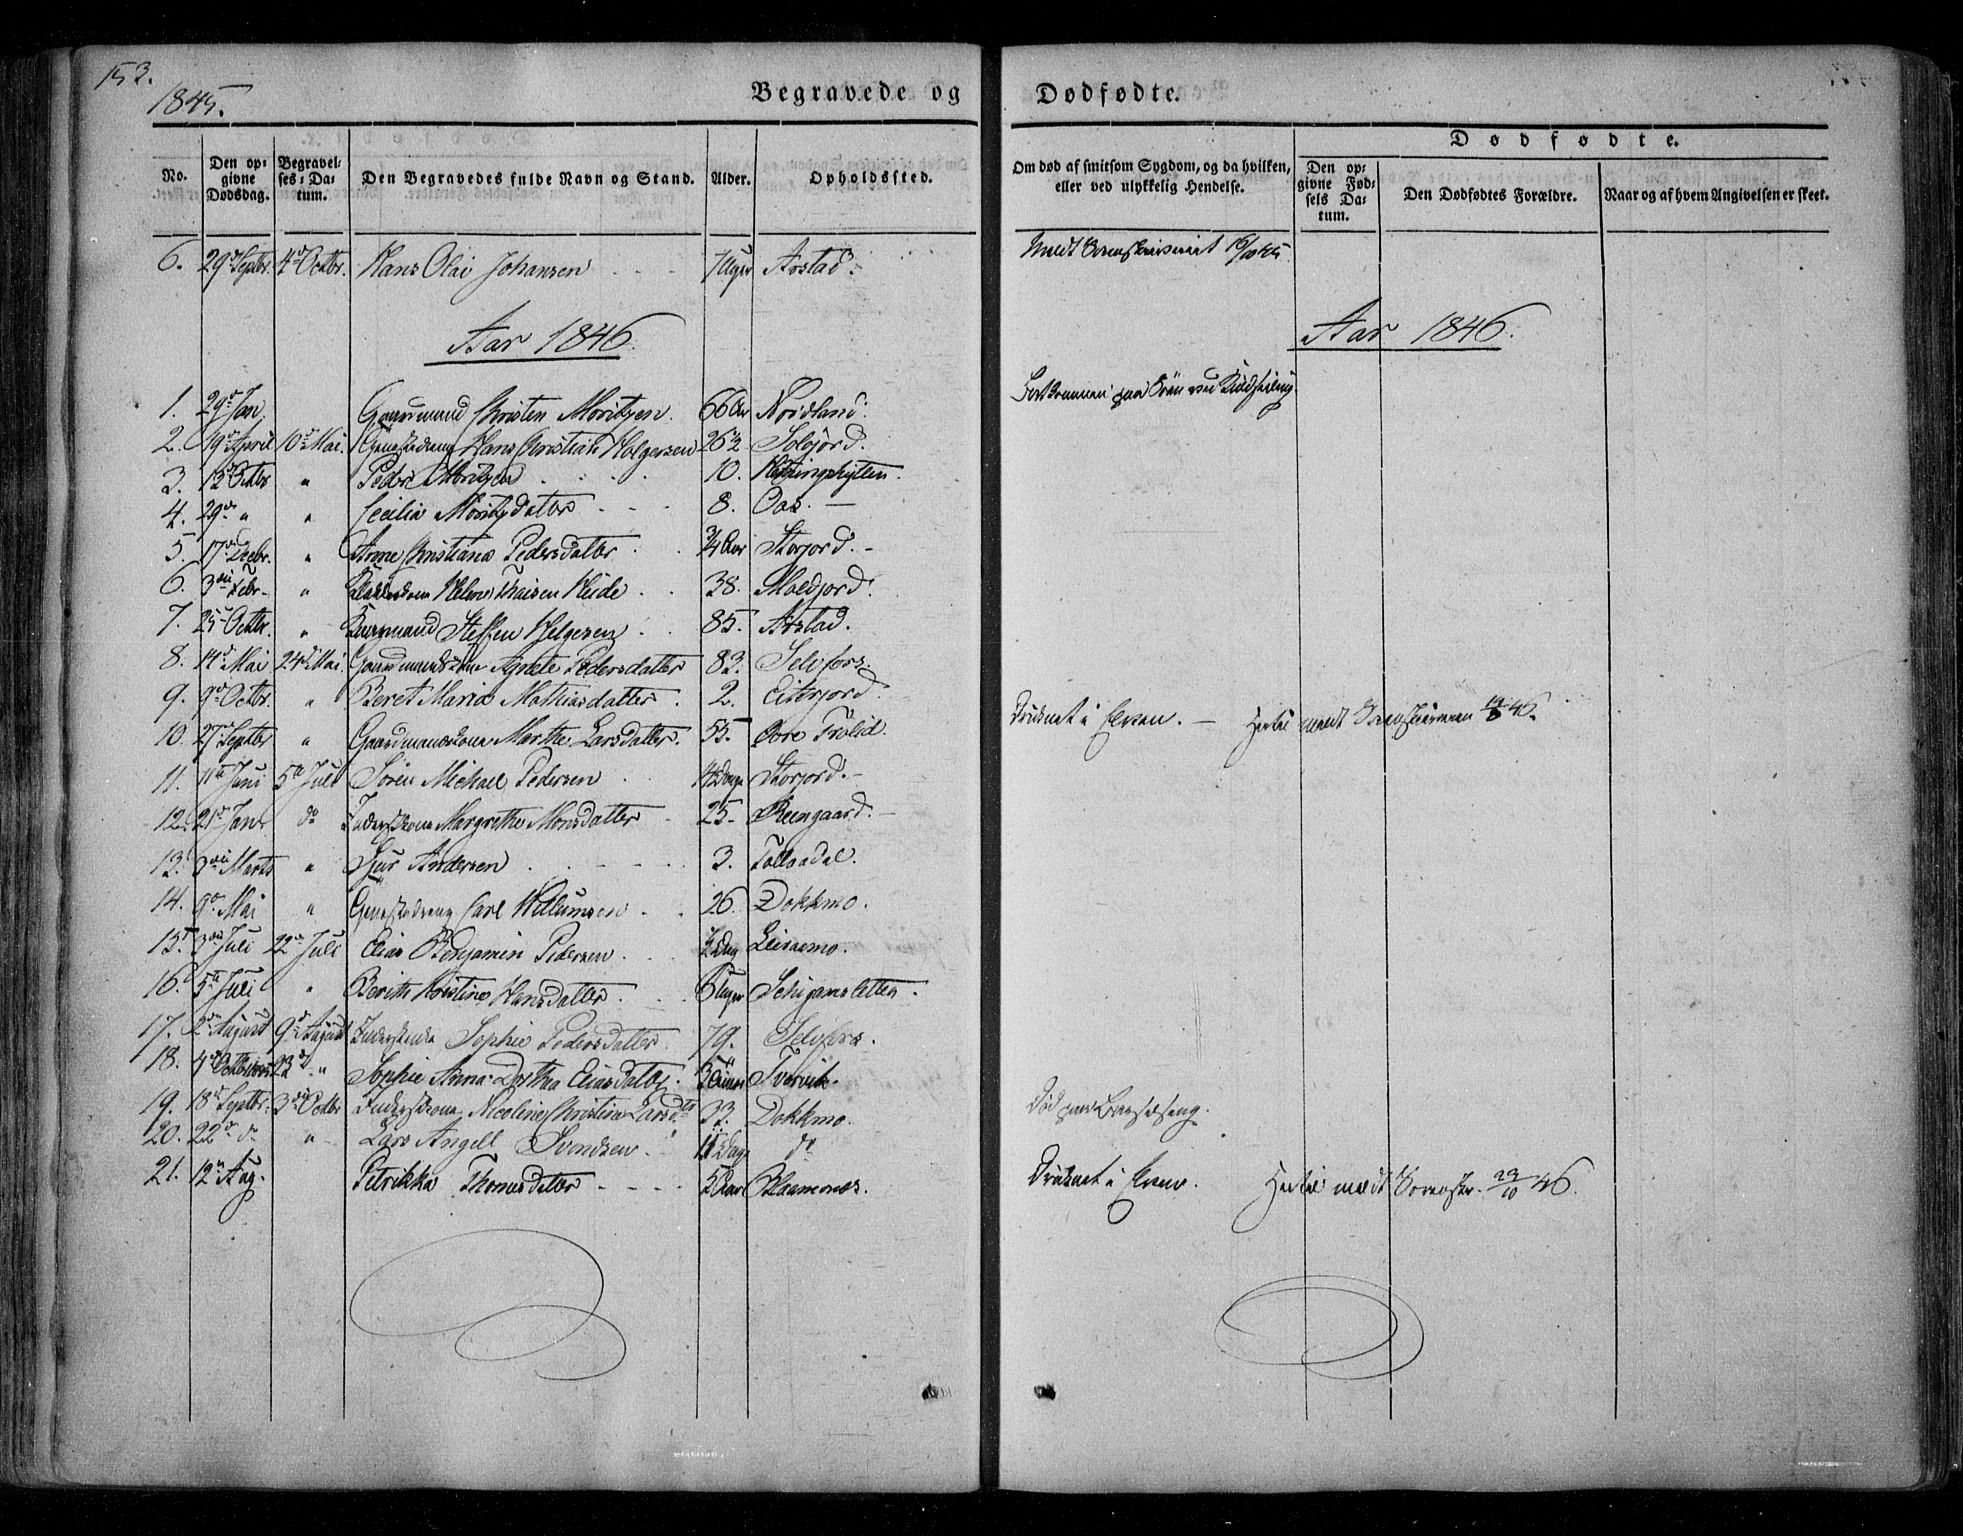 153.
1845.
Begravede og Dødfødte.
Dødfødte.
No. Den opgivne Dødsdag. Begravelses-Datum. Den Begravedes fulde Navn og Stand. Alder. Opholdssted. Om død af smitsom Sygdom, og da hvilken, eller ved ulykkelig Hendelse. Den opgivne Fødsels Datum. Den Dødfødtes Forældre. Naar og af hvem Angivelsen er skeet.
6. 29de Septbr. 4de Octbr. Hans Olai Johansen 7 Uger Arstad.
Aar 1846. Aar 1846.
1. 29de Jan. Gaardmand Christen Moritzen. 66 Aar Nordland.
2. 19de April 10de Mai. Hans Christian Holgersen 26 1/2 Solfjord.
3. 13de Octbr " Peder Moritzen 10.
4. 29de " " Cecilia Moritzdatter 8. Oas.
5. 17de Decbr. " Anne Christiana Pedersdatter 3/4 Aar Storjord.
6. 3die Febr. " Helene Thaisen Heide 38. Moldjord.
7. 25de Octbr. " Steffen Helgesen 85. Arstad.
8. 14de Mai 24de Mai Gaardmandskone Agnete Pedersdatter 83. Selvfors.
9. 9de Octbr. " Beret Maria Mathiasdatter 2. Eiterjord. Druknet i Elven.
10. 27de Septbr " Gaardmandskone Marthe Larsdatter. 55. Øvre Trolid.
11. 11te Juni 5te Juli Søren Michael Pedersen Storjord.
12. 21de Jan. do Inderstkone Margrethe Monsdatter 25. Reengaard.
13. 3die Marts " Sjur Andersen 3. Tollaadal.
14. 9de Mai " Carl Willumsen 26. Dokkmo.
15. 3die Juli 22de Juli Elias Benjamin Pedersen 1/2 Dag Leiraamo.
16. 5te Juli " Berith Kristine Hansdatter. 6 Uger
17. 2den August 9de August Sophie Pedersdatter. 79. Selvfors.
18. 4de 23de " Sophie Anna Dorthea Eliasdatter. Tvervik.
19. 18de Septbr. 3die Octbr Inderstkone Nicoline Christine Larsdtr 33. Dokkmo. Død paa Barselseng.
20. 22de do " Lars Angell Svendsen 11 Dage do
21. 12te Aug. Petrikka Thomasdatter 5 Aar Blaamonæs. Druknet i Elven. 29/10 46.